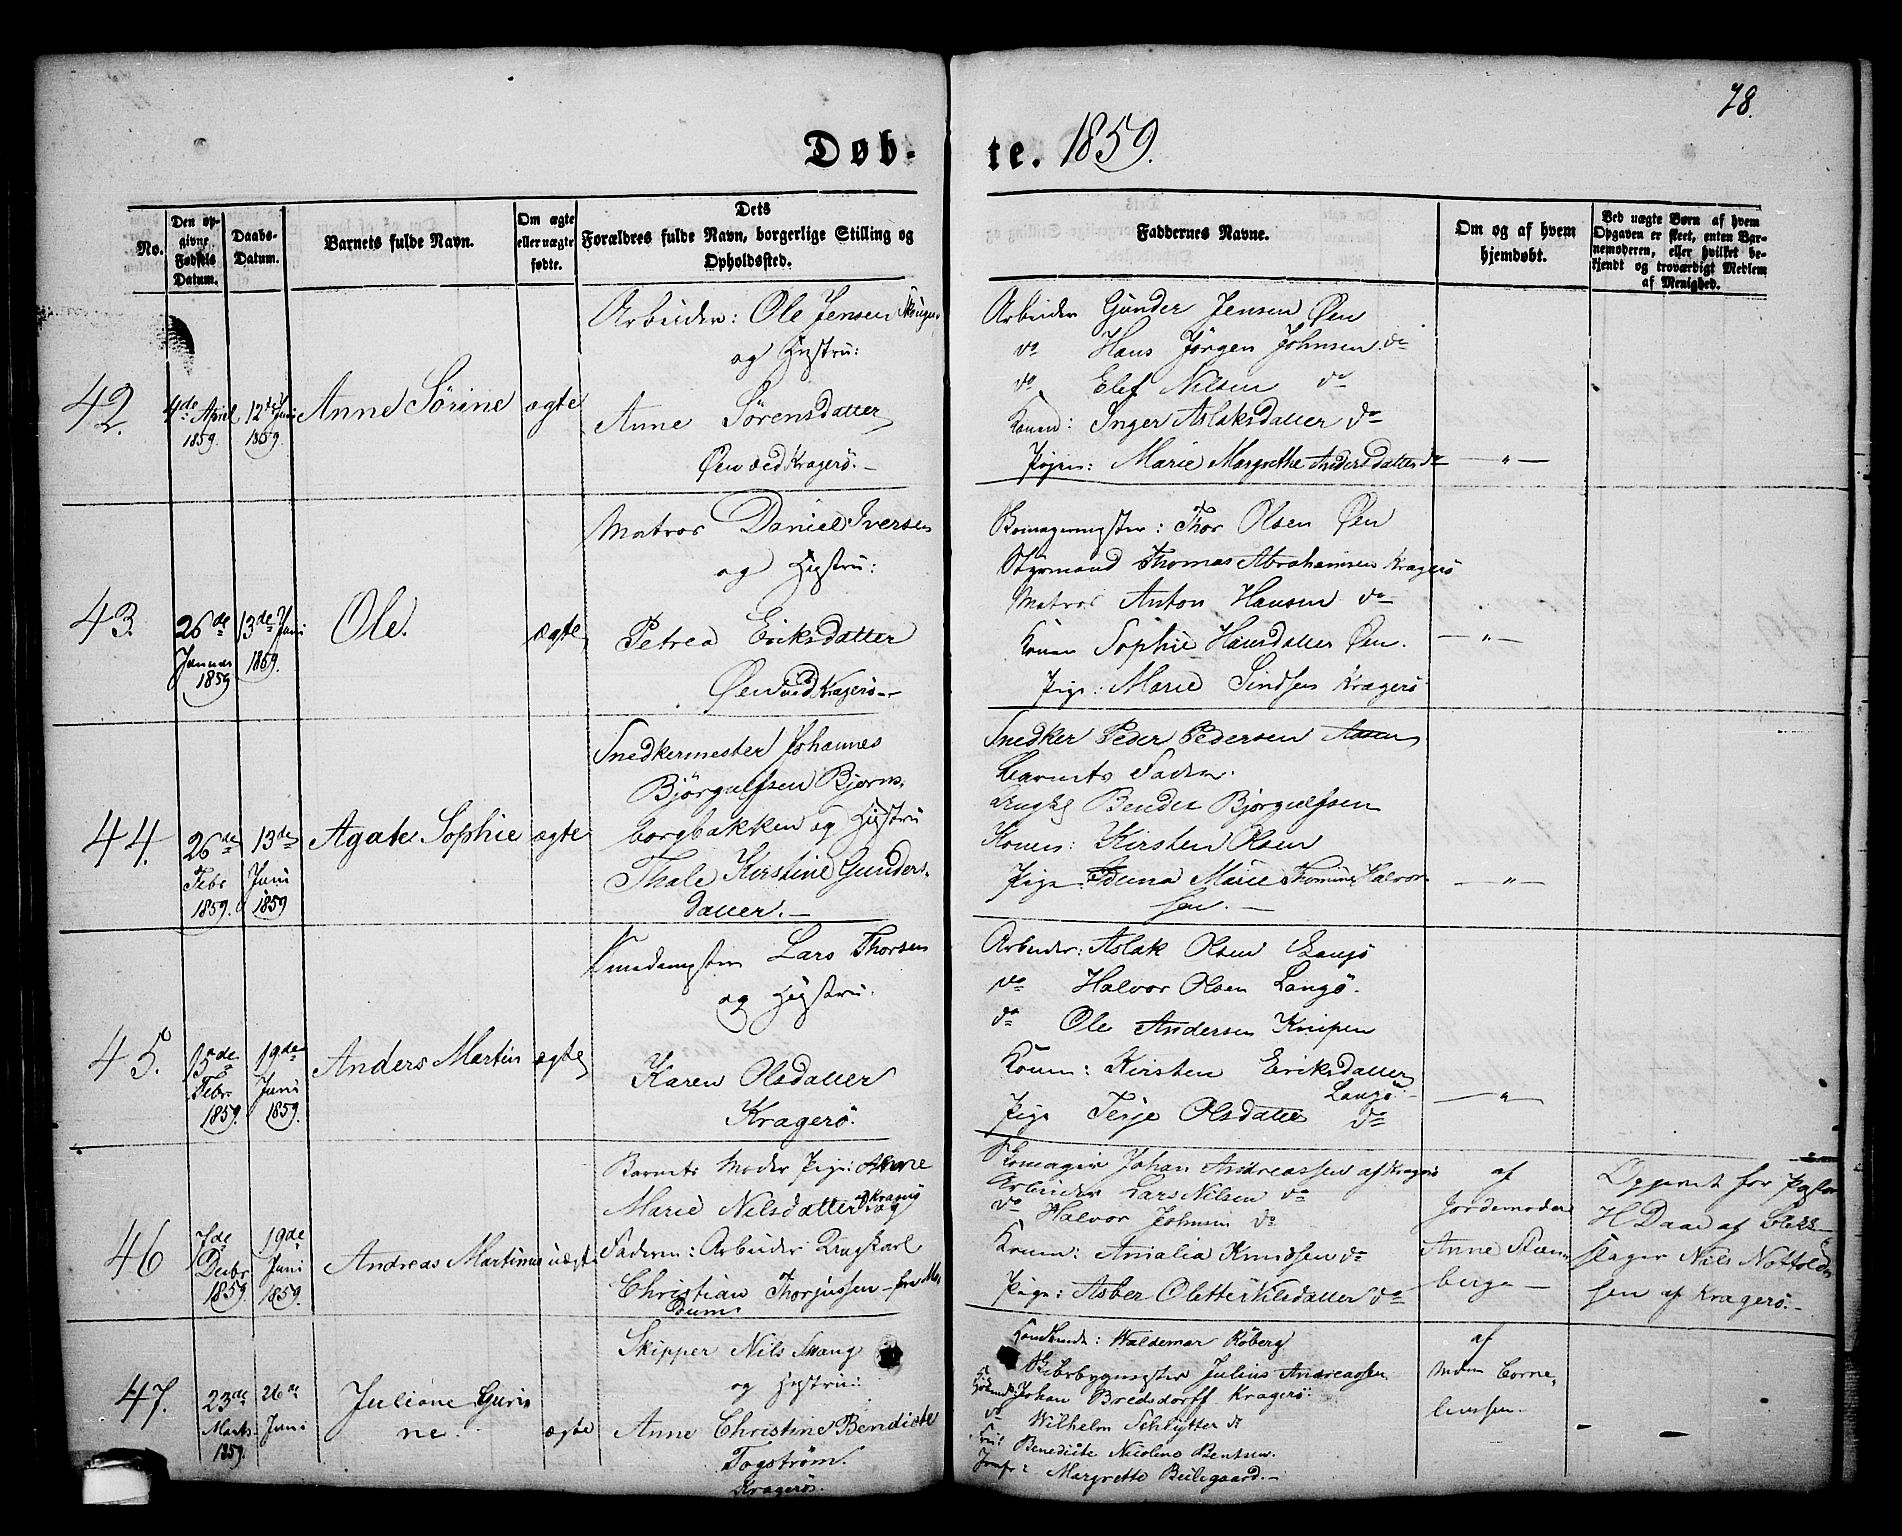 78.
Døb- te. 1859.
No.
Den op-
givne
Fødsels
Datum.
Daabs-
Datum.
Barnets fulde Navn.
Om ægte
eller uægte
fødte.
Dets
Forældres fulde Navn, borgerlige Stilling og
Opholdssted.
Faddernes Navne.
Om og af hvem
hjemdøbt.
Ved uægte Børn af hvem
Opgaven er skeet, enten Bar-
nemoderen, eller hvilket be-
kjendt og troværdigt Medlem
af Menighed.
42.
4de April
1859.
12te Juni
1859.
Anne Sörine
ægte
Arbeider: Ole Jensen
og Hustru:
Anne Sörensdatter
Øen ved Kragerö.-
Arbeider Gunder Jensen Øen
do Hans Jörgen Johnsen do
do Elef Nilsen do
Konen: Inger Aslaksdatter do
Pigen: Marie Margrethe Andersdatter do
- " -
43.
26de
Januar
1859
13de Juni
1859.
Ole.
ægte
Matros Daniel Iversen
og Hustru:
Petrea Eriksdatter
Øen ved Kragerö-
Thor Olsen Øen
Styrmand Thomas Abrahamsen Kragerö
Matros Anton Hansen do
Konen Sophie Hansdatter Øen.
Pige: Marie Sindsen Kragerö
- " -
44.
26de
Febr
1859.
13de
Juni
1859
Agate Sophie
ægte
Snedkermester Johannes
Björgulfsen Bjorns-
borgbakken og Hustru
Thale Kirstine Gunders-
datter.-
Snedker Peder Pedersen
Barnets Fader.
Bender Bjorgulfsen
Konen: Kirsten Olsen
Pige Marie Thomine Halvor-
sen.-
- " -
45.
15de
Febr
1859.
19de
Juni
1859.
Anders Martin
ægte
Lars Thorsen
og Hustru.
Karen Olsdatter
Kragerö.
Arbeider: Aslak Olsen Langö
do Halvor Olsen Langö.
do Ole Andersen Knipen
Konen: Kirsten Eriksdatter
Langö
Pige Terje Olsdatter do
- " -
46
7de
Decbr
1859.
19de
Juni
1859.
Andreas Martinus
uægte
Barnets Moder Pige: Anne
Marie Nilsdatter af Kragerö
og
Faderen: Arbeider Ungkarl
Christian Thorjussen fra
Johan Andreassen af Kragerö
Arbeider Lars Nilsen do
do Halvor Johnsen do
Konen: Amalia Knudsen do
Pige: Asber Olette Nilsdatter do
af
Jordemoder
Anne
berge -
Opgivet for Pastor
H Daae af
Nils
sen af Kragerö.-
47.
23de
Marts
1859.
26de
Juni
Juliane Guri-
ne.
ægte
Skipper Nils Svang
og Hustru:
Anne Christine Bendicte
Fogström.
Kragerö.
Waldemar Röberg
Julius Andreassen
Johan Bredsdorff Kragerö:
do Wilhelm Schlytter do
Benedicte Nicoline Bentsen.
Jomfr: Margrette Beilegaard.-
af
Corne-
liussen.
-
-